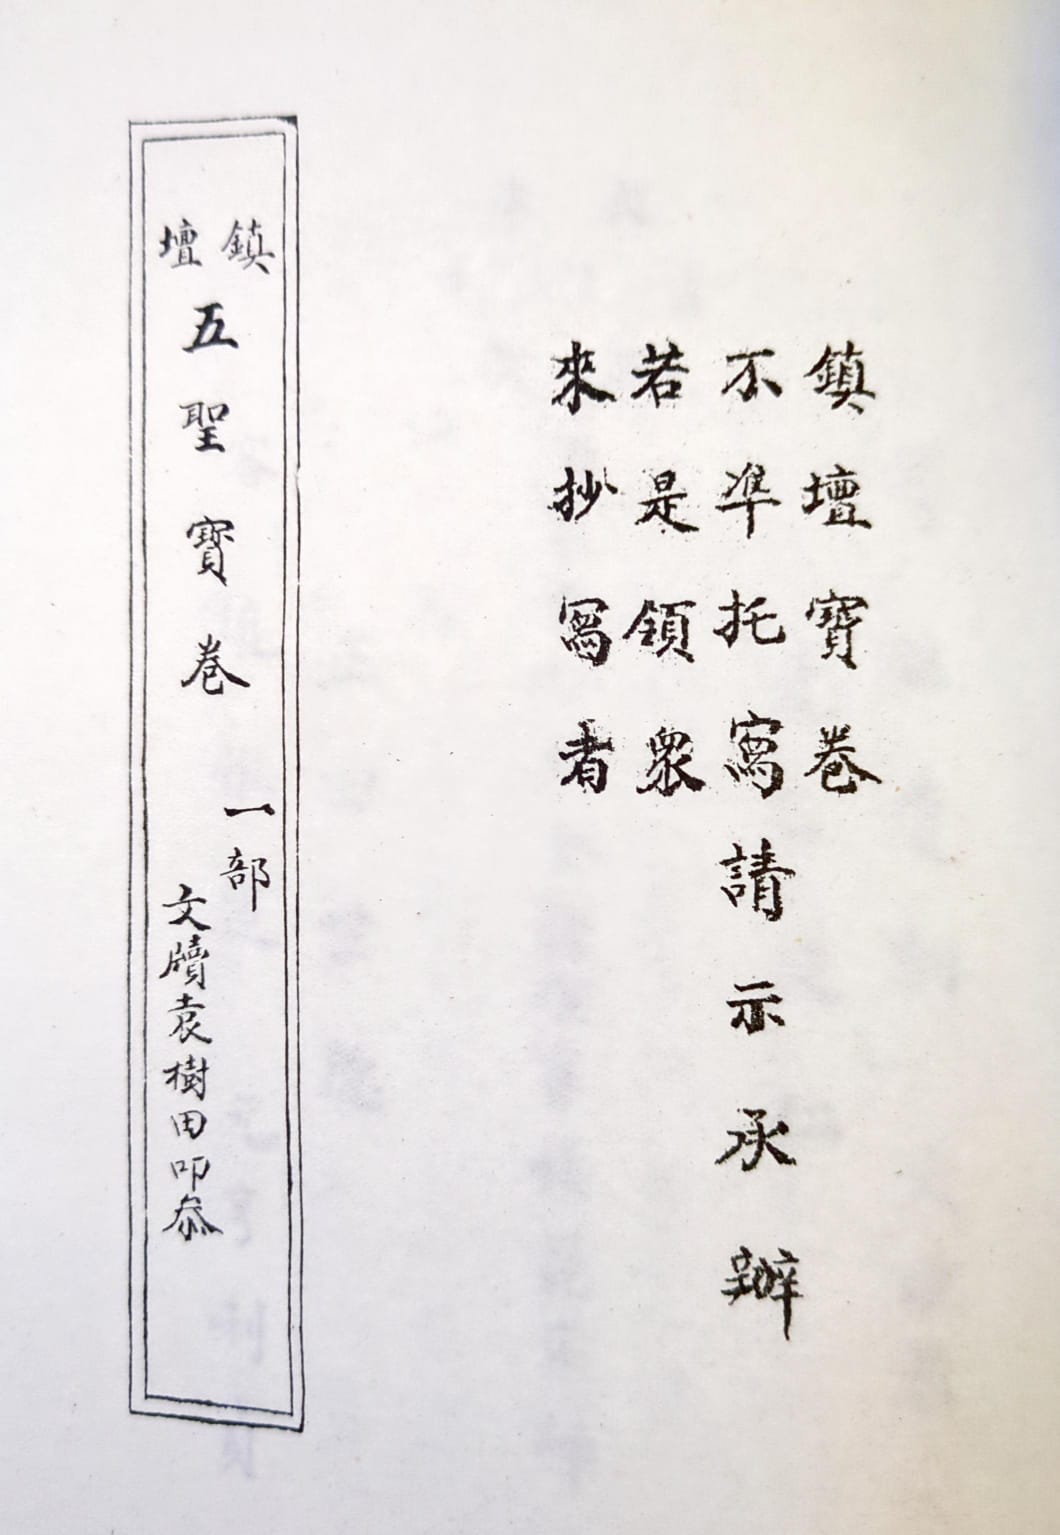 鎮壇寶卷
不準托寫請示承辦
若是領衆
來抄寫者
鎮壇
五聖寶卷
一部
文牘袁樹田叩